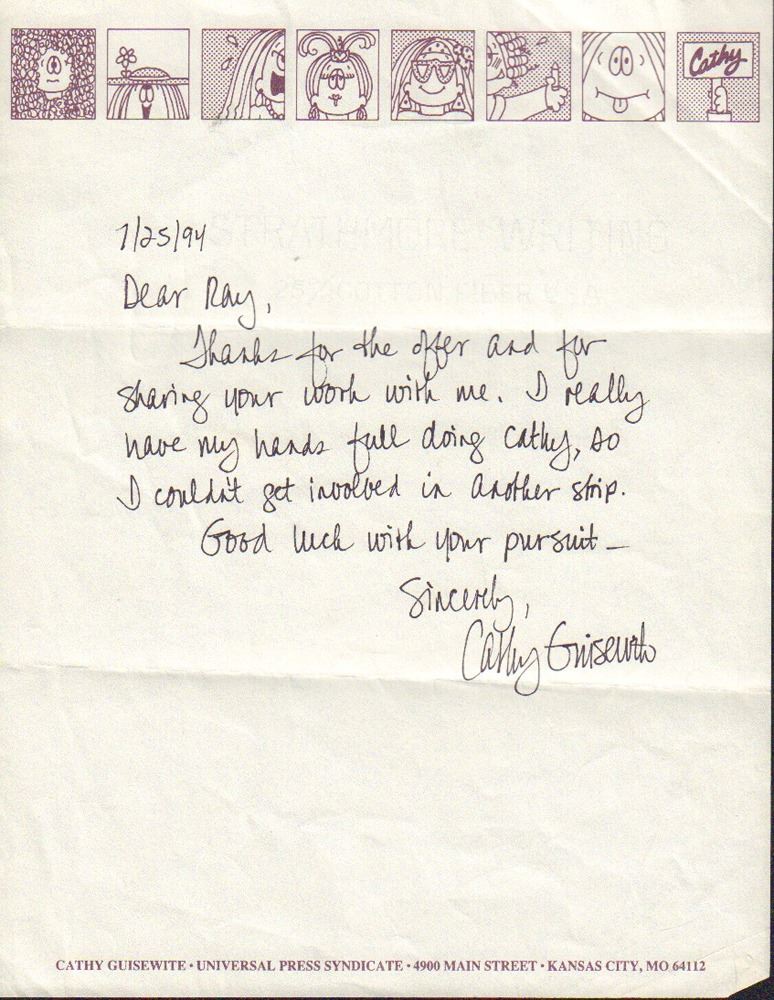 Cathy
7/25/94
STRATHMORE WRITING
25% COTTON FIBER U.S.A.
Dear Ray,
Thanks for the offer and for
sharing your work with me. I really
have my hands full doing Cathy, so
I couldn't get involved in another strip.
Good luck with your pursuit —
Sincerely,
Cathy Guisewite
CATHY GUISEWITE • UNIVERSAL PRESS SYNDICATE • 4900 MAIN STREET • KANSAS CITY, MO 64112